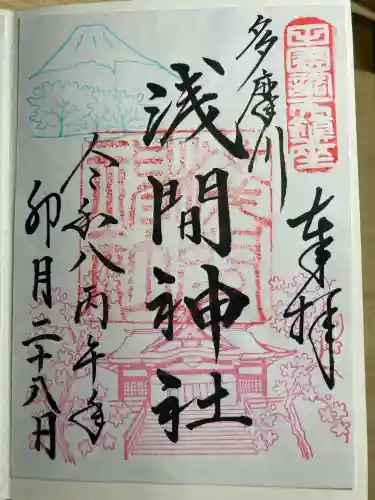 奉拝
多摩川
浅間神社
令和八丙午年
卯月二十八日